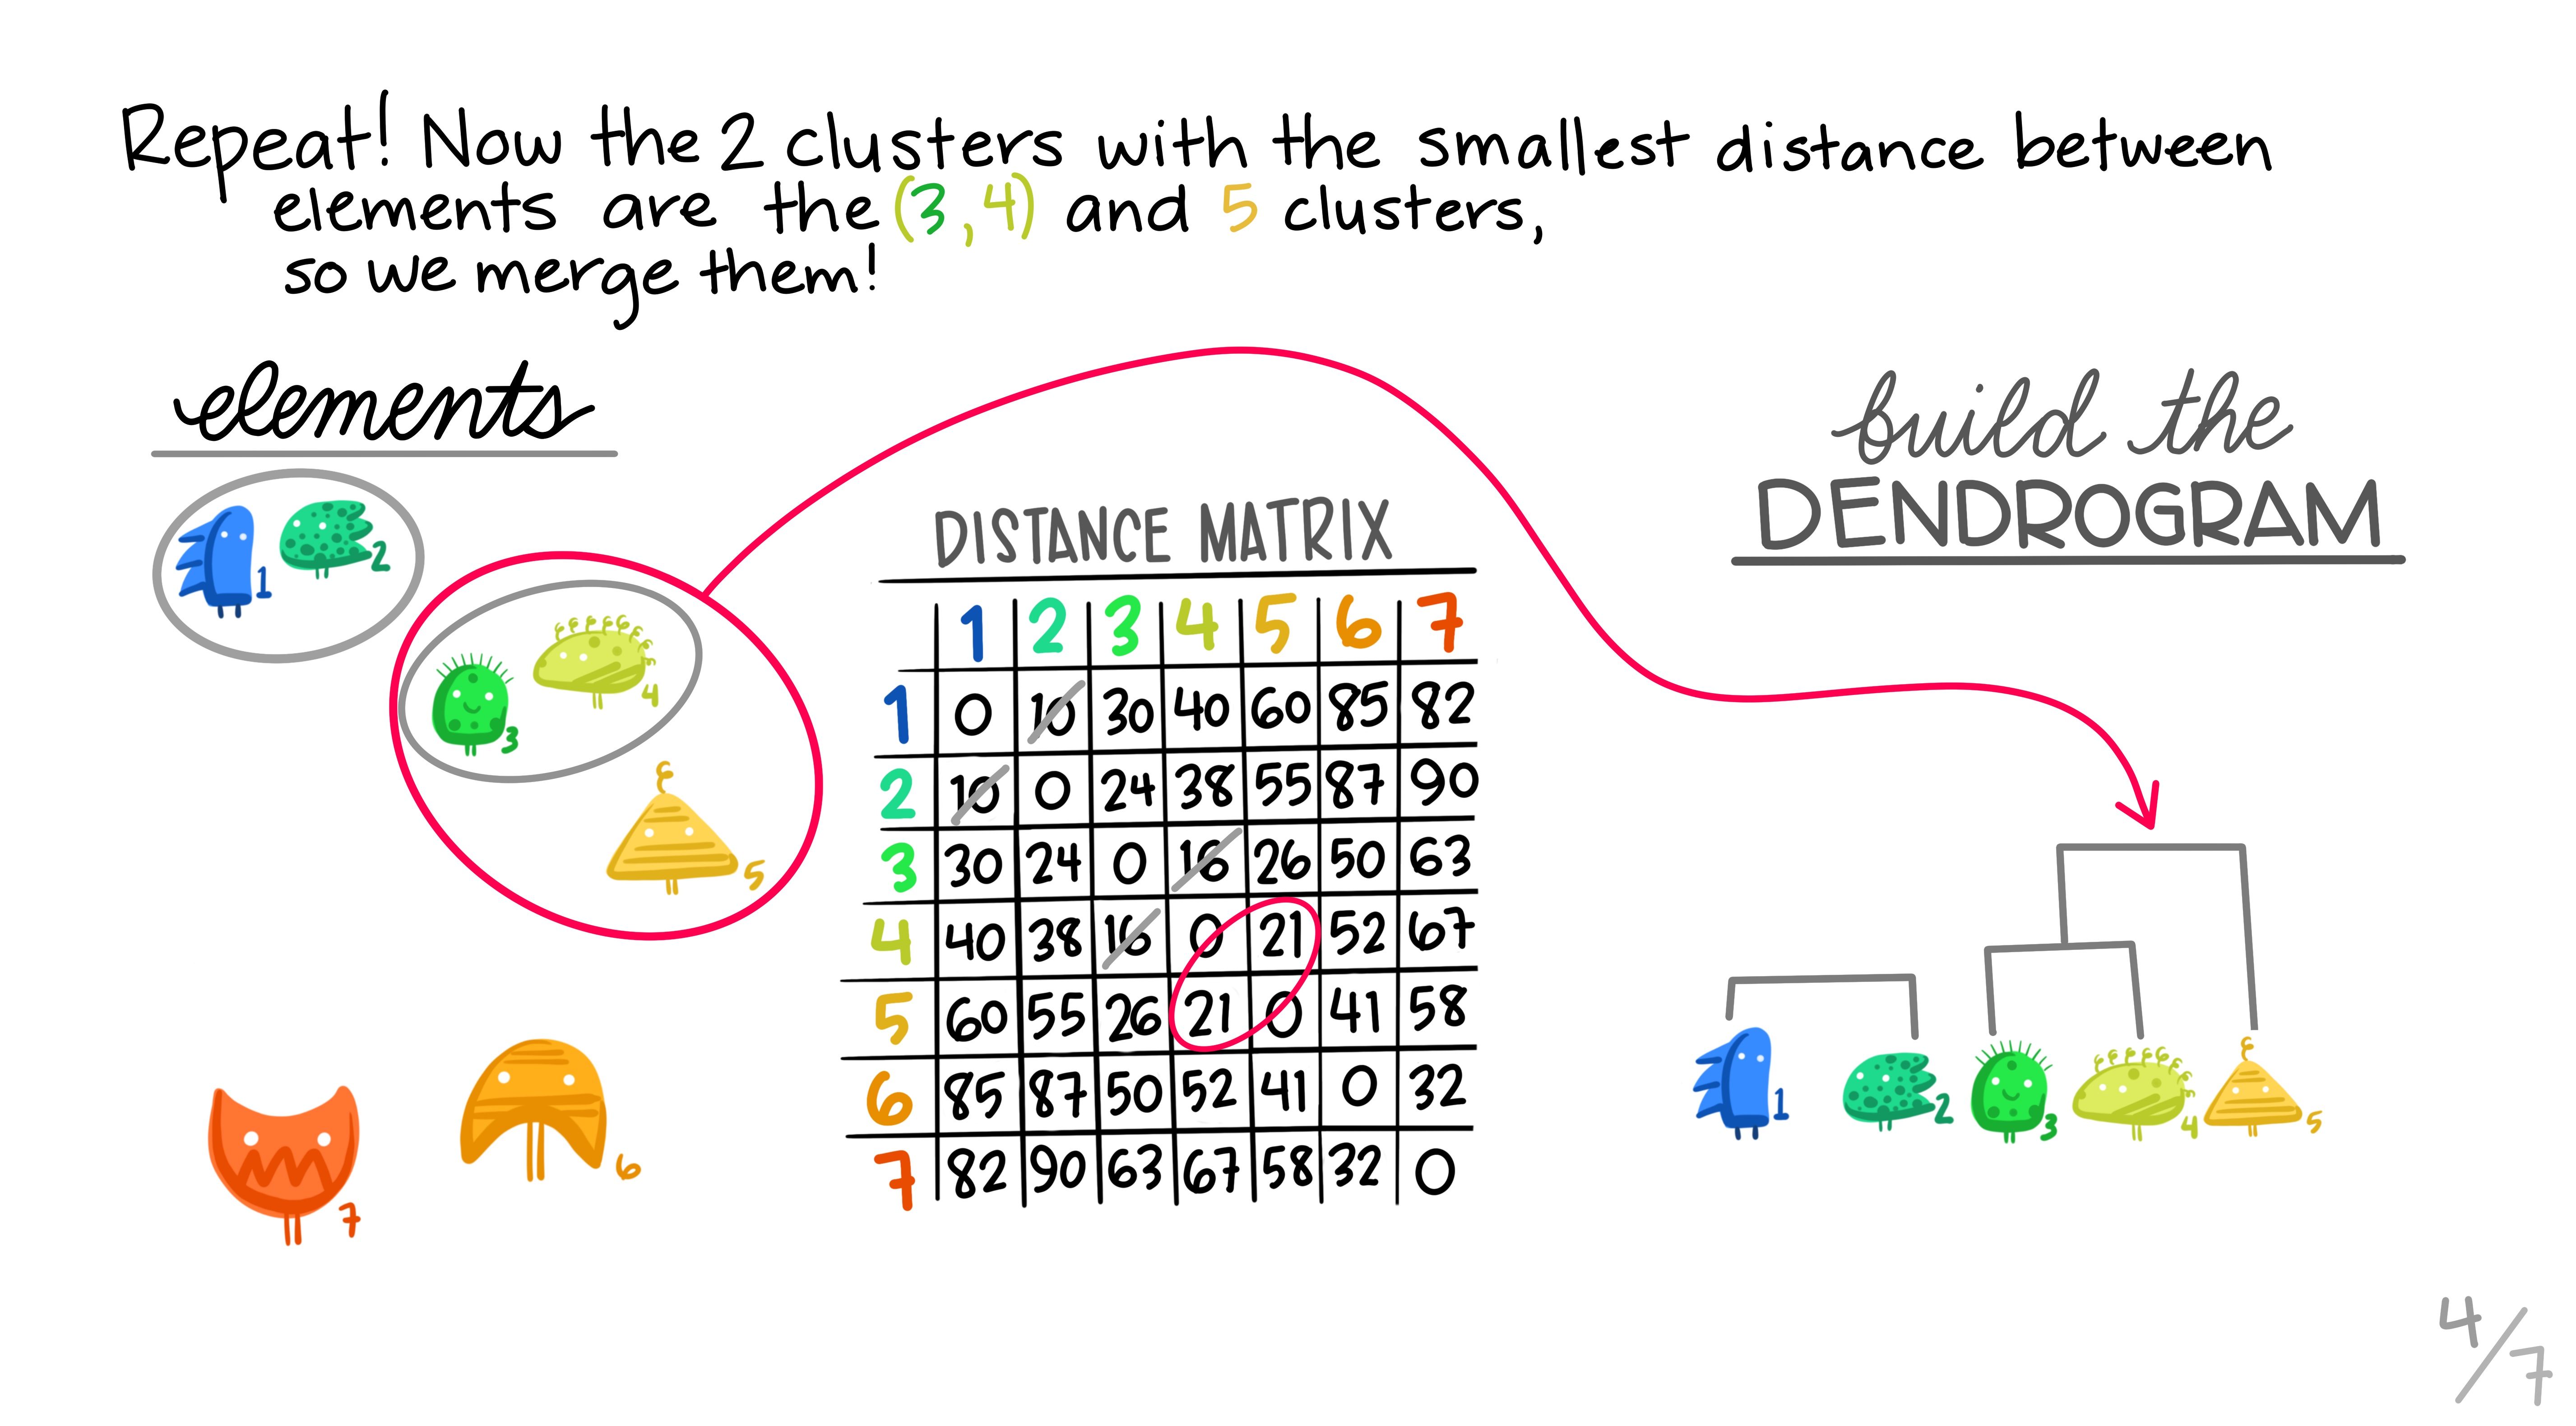 Repeat! Now the 2 clusters with the smallest distance between
elements are the (3,4) and 5 clusters,
so we merge them!
elements
1
2
3
4
5
6
7
DISTANCE MATRIX
1 2 3 4 5 6 7
1 0 10 30 40 60 85 82
2 10 0 24 38 55 87 90
3 30 24 0 16 26 50 63
4 40 38 16 0 21 52 67
5 60 55 26 21 0 41 58
6 85 87 50 52 41 0 32
7 82 90 63 67 58 32 0
build the
DENDROGRAM
1 2 3 4 5
4/7